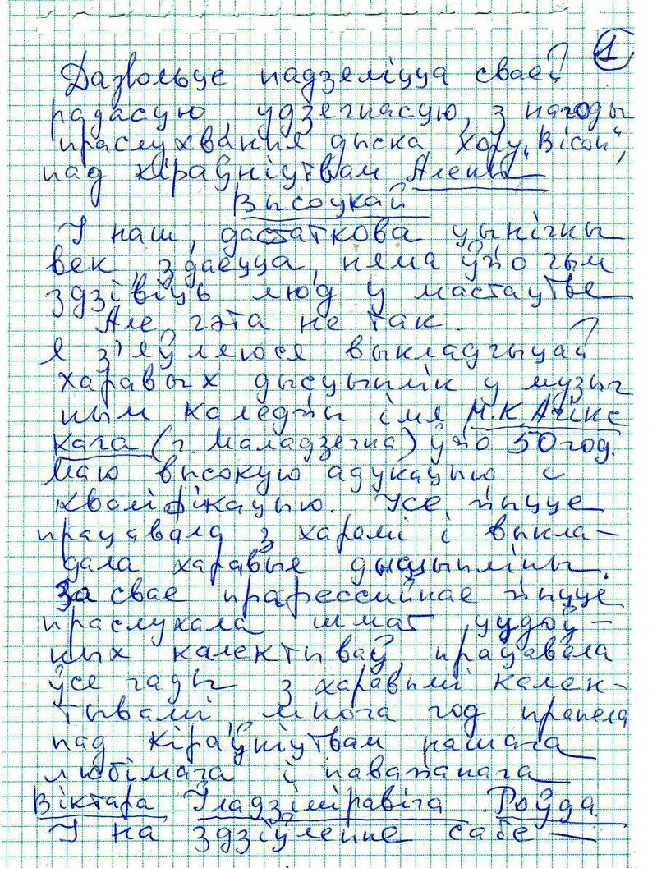 1
Дазвольце падзеліцца сваей
радасцю, удзячнасцю, з нагоды
праслухвання дыска, хору "Вісон",
пад кіраўніцтвам Алены
Высоцкай
У наш, дастаткова цынічны
век, здаецца, няма ўжо чым
здзівіць люд у мастацтве
Але, гэта не так.
Я з'яўляюся выкладчыцай
харавых дысцыплін у музыч
ным каледжы імя М.К.Агінс
кага (г. Маладзечна) ўжо 50 год.
Маю высокую адукацыю и
кваліфікацыю. Усе жыцце
працавала з харамі і выкла-
дала харавые дысцыпліны.
За свае прафессийнае жыцце
праслухала шмат цудоў-
ных калектываў працавала
ўсе гады з харавымі калек-
тывамі, многа год прапела
пад кіраўніцтвам нашага
любімага і паважанага
Віктара Уладзіміравіча Роўда
І на здзіўленне сабе —